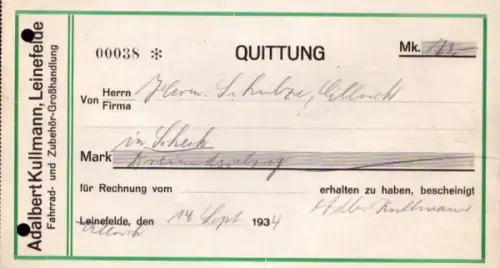 Adalbert Kullmann, Leinefelde
Fahrrad- und Zubehör-Großhandlung
00038 * QUITTUNG Mk.
Von Herrn
Firma Herm. Schulze, Ellrich
in Scheck
Mark
für Rechnung vom erhalten zu haben, bescheinigt
Leinefelde, den 14 Sept 1934 Adalbert Kullmann
Ellrich